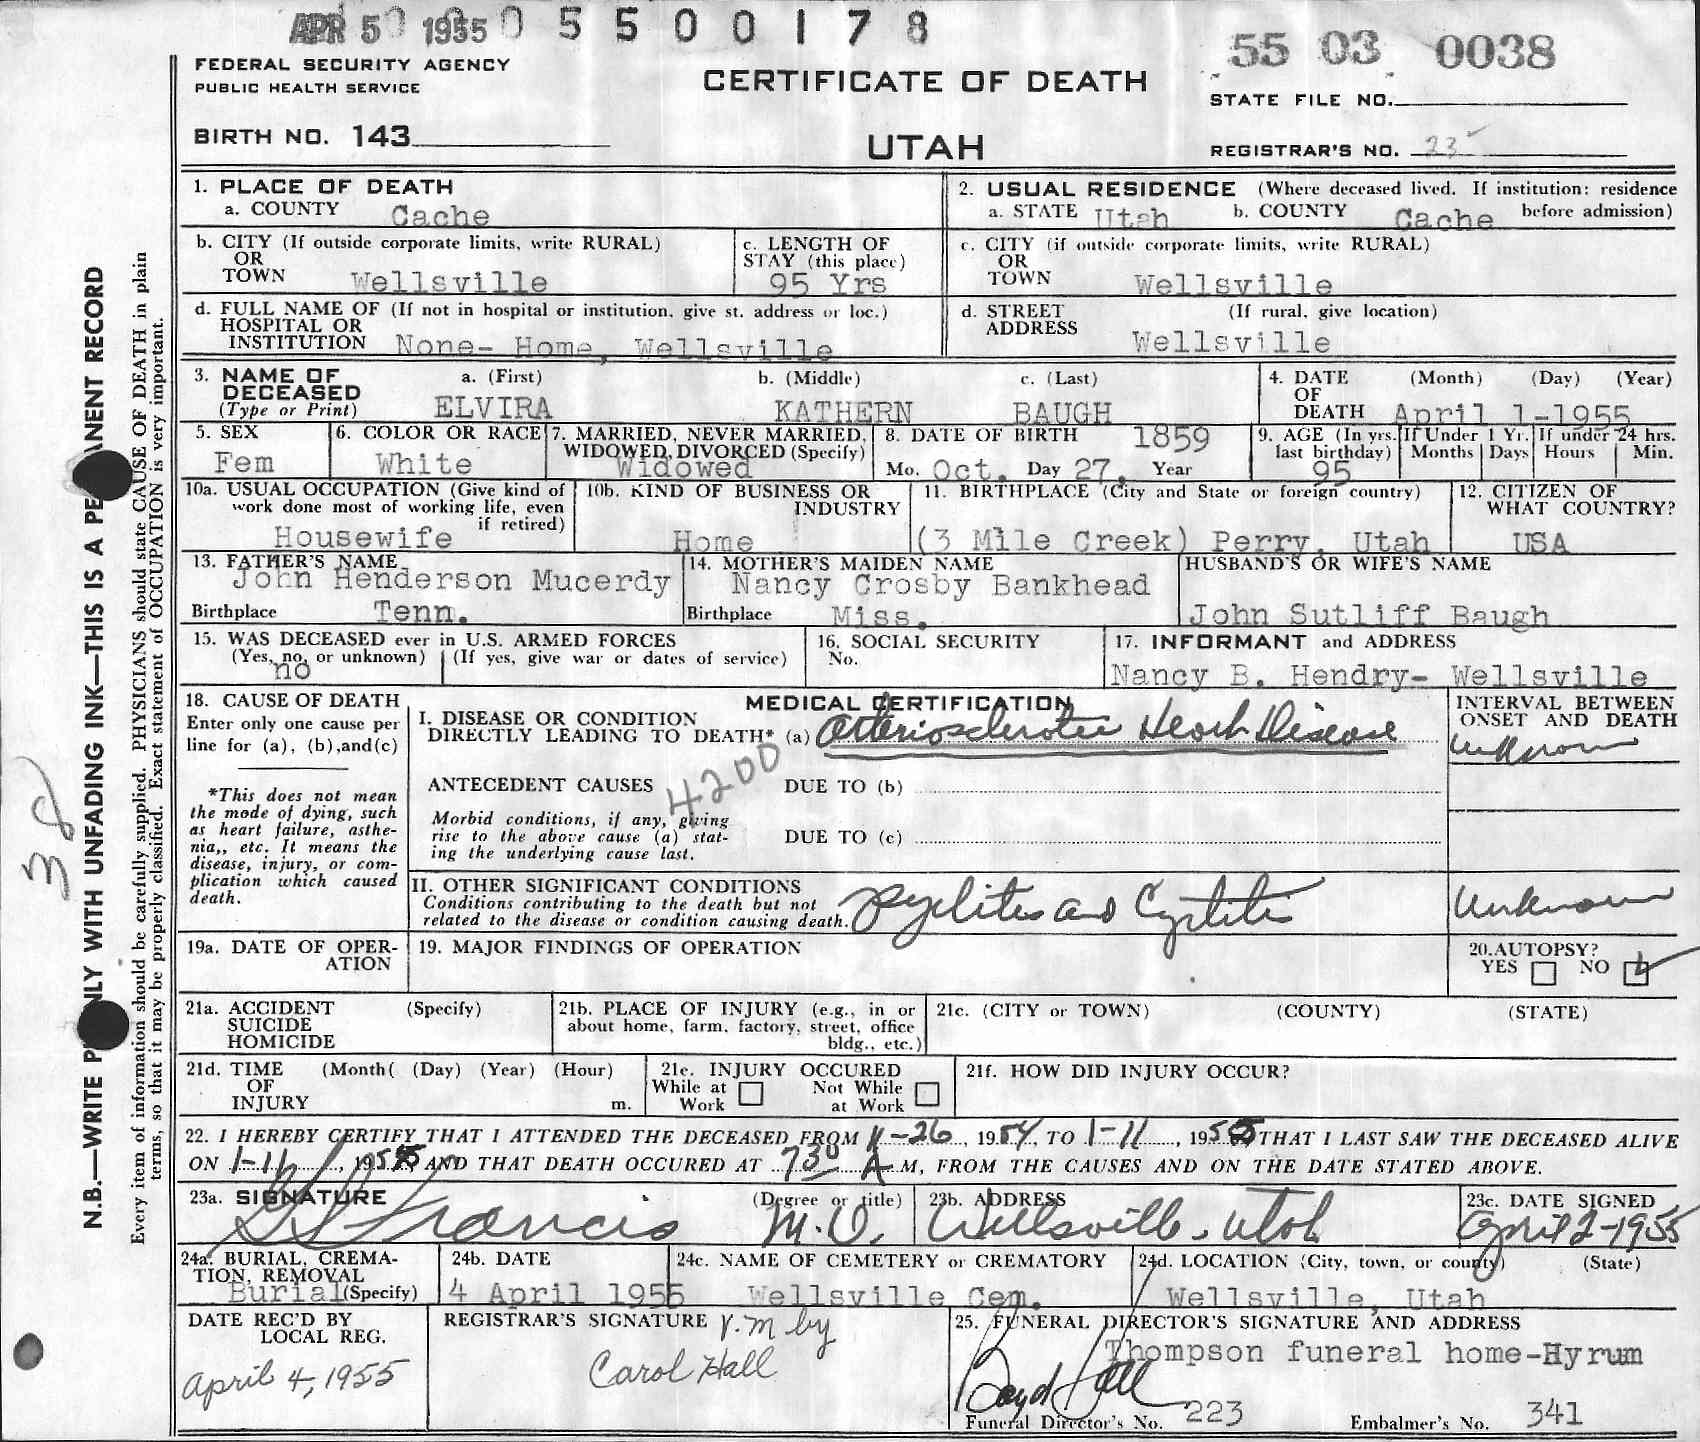 APR 5 1955 0 5 5 0 0 1 7 8
55 03 0038
FEDERAL SECURITY AGENCY
PUBLIC HEALTH SERVICE
CERTIFICATE OF DEATH
STATE FILE NO.
BIRTH NO. 143
UTAH
REGISTRAR'S NO. 23
1. PLACE OF DEATH
a. COUNTY Cache
2. USUAL RESIDENCE (Where deceased lived. If institution: residence
a. STATE Utah b. COUNTY Cache before admission)
b. CITY (If outside corporate limits, write RURAL)
OR
TOWN Wellsville
c. LENGTH OF
STAY (this place)
95 Yrs
c. CITY (if outside corporate limits, write RURAL)
OR
TOWN Wellsville
d. FULL NAME OF (If not in hospital or institution, give st. address or loc.)
HOSPITAL OR
INSTITUTION None- Home, Wellsville
d. STREET (If rural, give location)
ADDRESS Wellsville
3. NAME OF DECEASED
(Type or Print)
a. (First) b. (Middle) c. (Last)
ELVIRA KATHERN BAUGH
4. DATE (Month) (Day) (Year)
OF
DEATH April 1-1955
5. SEX
Fem
6. COLOR OR RACE
White
7. MARRIED, NEVER MARRIED,
WIDOWED, DIVORCED (Specify)
Widowed
8. DATE OF BIRTH 1859
Mo. Oct. Day 27, Year
9. AGE (In yrs. last birthday)
95
If Under 1 Yr.
Months Days
If under 24 hrs.
Hours Min.
10a. USUAL OCCUPATION (Give kind of
work done most of working life, even
if retired)
Housewife
10b. KIND OF BUSINESS OR
INDUSTRY
Home
11. BIRTHPLACE (City and State or foreign country)
(3 Mile Creek) Perry, Utah
12. CITIZEN OF
WHAT COUNTRY?
USA
13. FATHER'S NAME
John Henderson Mucerdy
Birthplace Tenn.
14. MOTHER'S MAIDEN NAME
Nancy Crosby Bankhead
Birthplace Miss.
HUSBAND'S OR WIFE'S NAME
John Sutliff Baugh
15. WAS DECEASED ever in U.S. ARMED FORCES
(Yes, no, or unknown) (If yes, give war or dates of service)
no
16. SOCIAL SECURITY
No.
17. INFORMANT and ADDRESS
Nancy B. Hendry- Wellsville
18. CAUSE OF DEATH
Enter only one cause per
line for (a), (b),and(c)
*This does not mean
the mode of dying, such
as heart failure, asthe-
nia,, etc. It means the
disease, injury, or com-
plication which caused
death.
MEDICAL CERTIFICATION
I. DISEASE OR CONDITION
DIRECTLY LEADING TO DEATH* (a) Arteriosclerotic Heart Disease
INTERVAL BETWEEN
ONSET AND DEATH
unknown
4200
ANTECEDENT CAUSES DUE TO (b)
Morbid conditions, if any, giving
rise to the above cause (a) stat-
ing the underlying cause last.
DUE TO (c)
II. OTHER SIGNIFICANT CONDITIONS
Conditions contributing to the death but not
related to the disease or condition causing death.
Pyelitis and Cystitis
Unknown
19a. DATE OF OPER-
ATION
19. MAJOR FINDINGS OF OPERATION
20.AUTOPSY?
YES NO
21a. ACCIDENT (Specify)
SUICIDE
HOMICIDE
21b. PLACE OF INJURY (e.g., in or
about home, farm, factory, street, office
bldg., etc.)
21c. (CITY or TOWN) (COUNTY) (STATE)
21d. TIME (Month( (Day) (Year) (Hour)
OF
INJURY m.
21e. INJURY OCCURED
While at Work Not While at Work
21f. HOW DID INJURY OCCUR?
22. I HEREBY CERTIFY THAT I ATTENDED THE DECEASED FROM 11-26, 1954, TO 1-11, 1955 THAT I LAST SAW THE DECEASED ALIVE
ON 1-11, 1955 AND THAT DEATH OCCURED AT 730 A M, FROM THE CAUSES AND ON THE DATE STATED ABOVE.
23a. SIGNATURE (Degree or title)
Francis M.D.
23b. ADDRESS
Wellsville, Utah
23c. DATE SIGNED
April 2-1955
24a. BURIAL, CREMA-
TION, REMOVAL
Burial (Specify)
24b. DATE
4 April 1955
24c. NAME OF CEMETERY or CREMATORY
Wellsville Cem.
24d. LOCATION (City, town, or county) (State)
Wellsville, Utah
DATE REC'D BY
LOCAL REG.
April 4, 1955
REGISTRAR'S SIGNATURE V.M by
Carol Hall
25. FUNERAL DIRECTOR'S SIGNATURE AND ADDRESS
Thompson funeral home-Hyrum
Boyd Hall
Funeral Director's No. 223 Embalmer's No. 341
N.B.—WRITE PLAINLY WITH UNFADING INK—THIS IS A PERMANENT RECORD
Every item of information should be carefully supplied. PHYSICIANS should state CAUSE OF DEATH in plain
terms, so that it may be properly classified. Exact statement of OCCUPATION is very important.
38